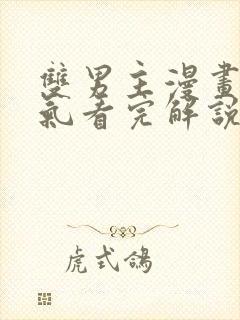 雙男主漫畫
氣看完解說
虎式鴿